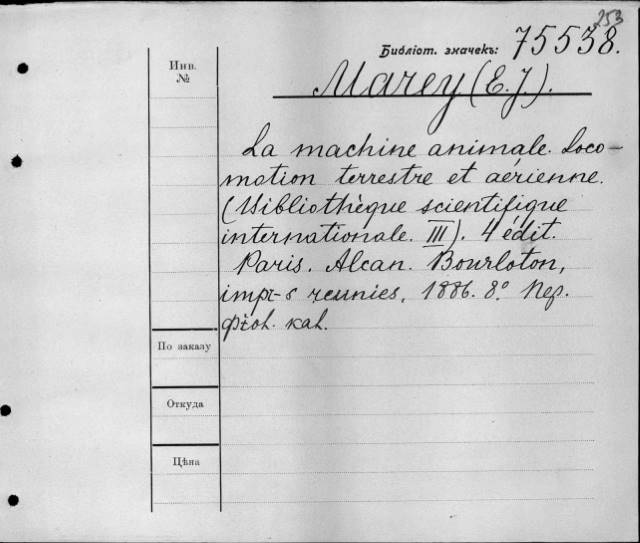 253
Библіот. значекъ: 75538.
Инв.
№
Marey (E.J.).
La machine animale. Loco-
motion terrestre et aérienne.
(Bibliothèque scientifique
internationale. III). 4 édit.
Paris. Alcan. Bourloton,
impr-s reunies, 1886. 8º. Пер.
кал.
По заказу
Откуда
Цѣна